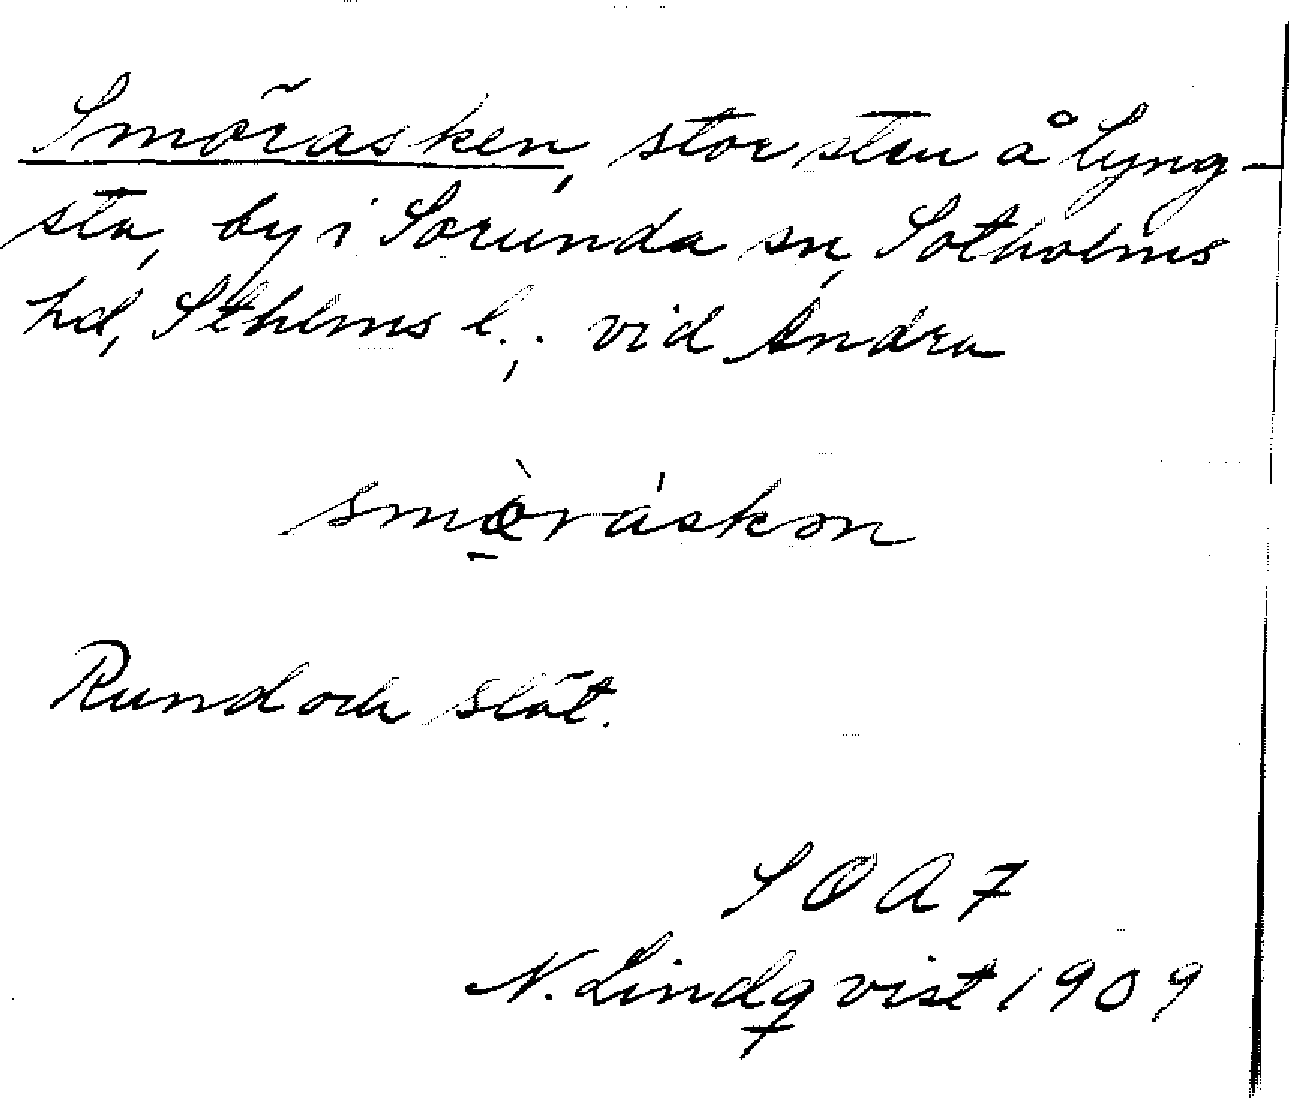 Smörasken, stor sten å Lyng-
sta, by i Sorunda sn, Sotholms
hd, Sthlms l.; vid Andra
smø̀ráskɔn
Rund och slät.
SOAF
N. Lindqvist 1909